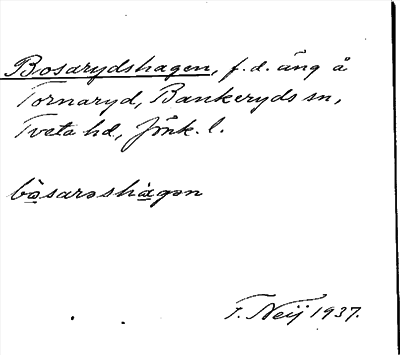 Bosarydshagen, f.d. äng å
Tornaryd, Bankeryds sn,
Tveta hd, Jönk. l.
bò̲sarəshà̲gən
T. Neij 1937.